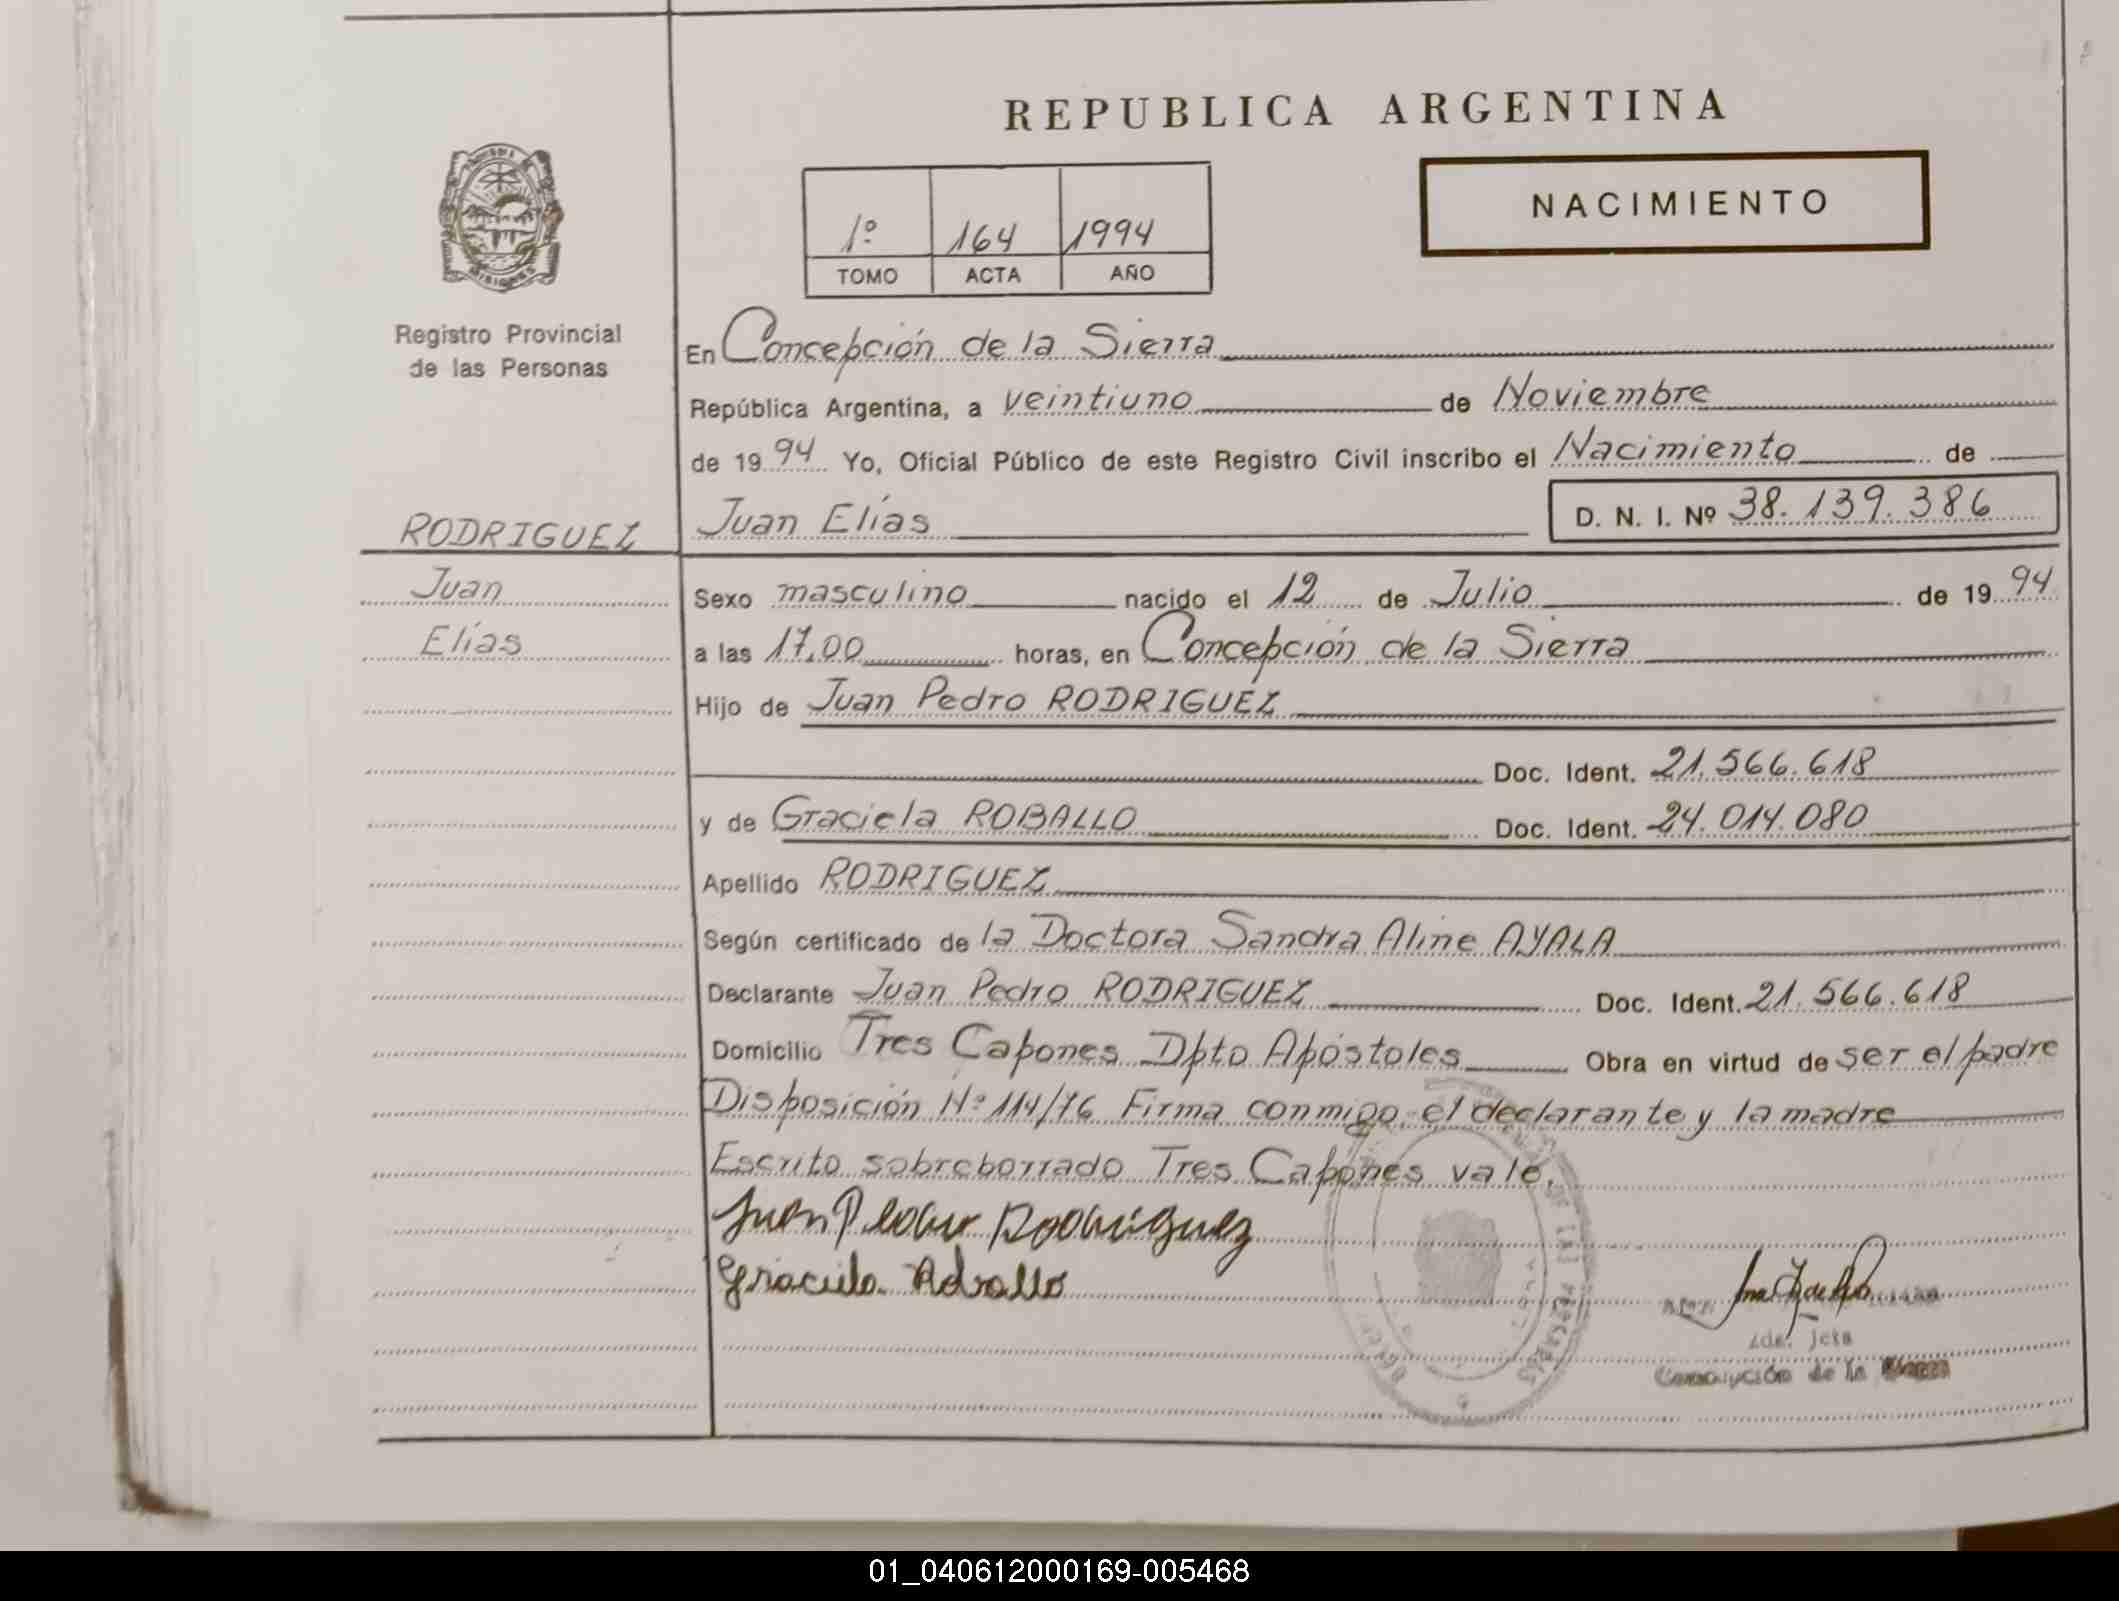 REPUBLICA ARGENTINA
NACIMIENTO
1º 164 1994
TOMO ACTA AÑO
MISIONES
Registro Provincial
de las Personas
En Concepción de la Sierra
República Argentina, a veintiuno de Noviembre
de 1994 Yo, Oficial Público de este Registro Civil inscribo el Nacimiento de
RODRIGUEZ
Juan Elías D. N. I. Nº 38.139.386
Juan
Sexo masculino nacido el 12 de Julio de 1994
Elías
a las 17,00 horas, en Concepción de la Sierra
Hijo de Juan Pedro RODRIGUEZ
Doc. Ident. 21.566.618
y de Graciela ROBALLO Doc. Ident. 24.014.080
Apellido RODRIGUEZ
Según certificado de la Doctora Sandra Aline AYALA
Declarante Juan Pedro RODRIGUEZ Doc. Ident. 21.566.618
Domicilio Tres Capones Dpto Apóstoles Obra en virtud de ser el padre
Disposición Nº 114/76 Firma conmigo el declarante y la madre
Escrito sobreborrado Tres Capones vale.
Juan Pedro Rodriguez
Graciela Roballo
DE LAS PERSONAS
Jefa
Concepción de la Sierra
01_040612000169-005468